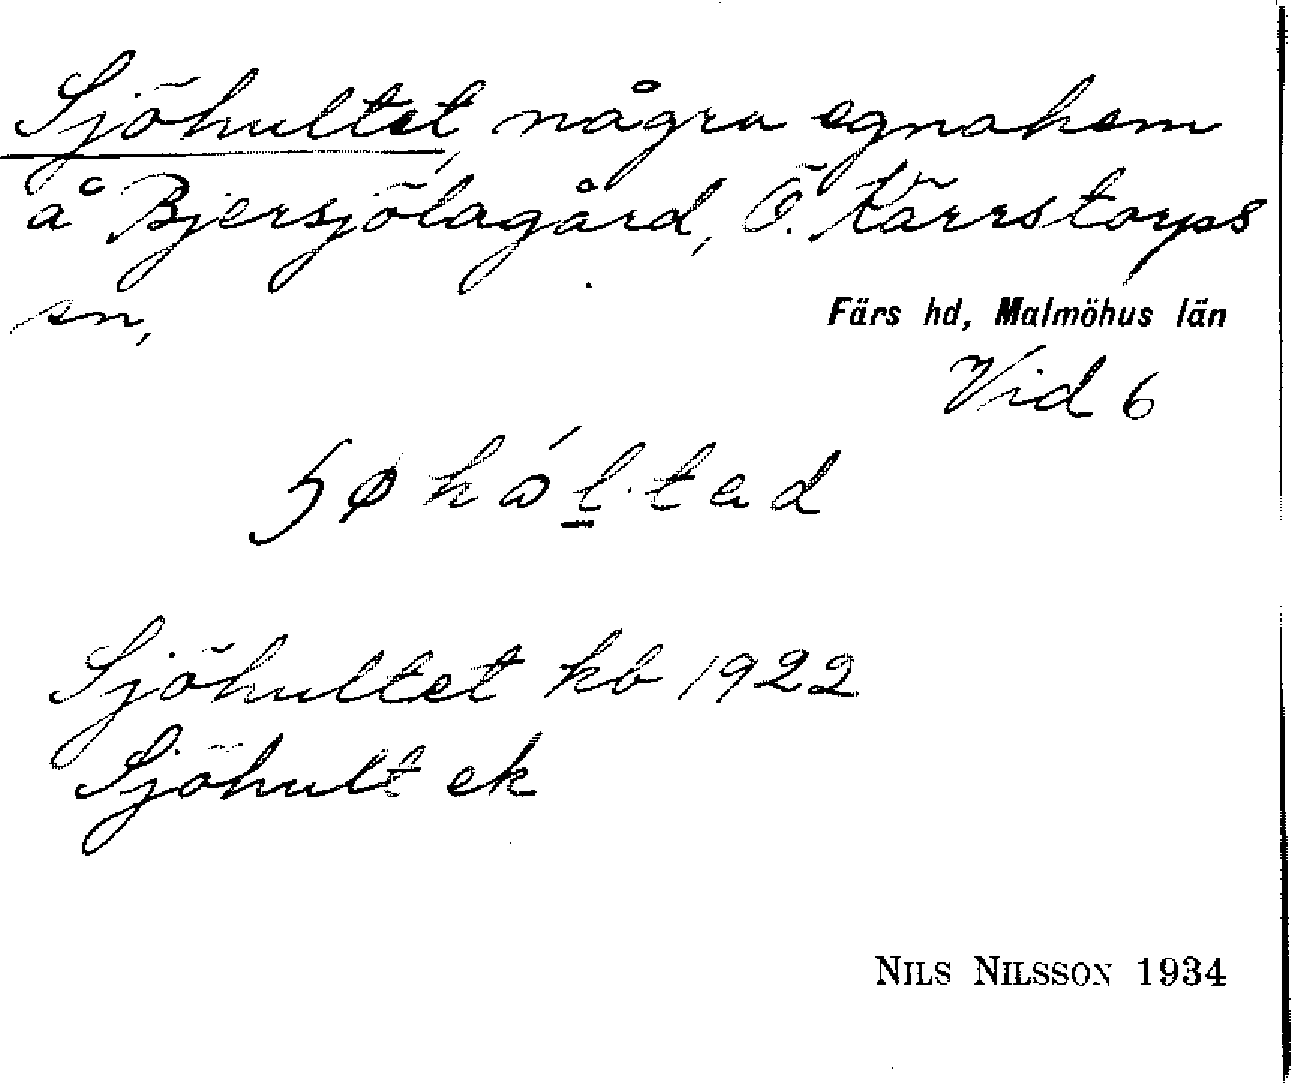 Sjöhultet, några egnahem
å Bjersjölagård, Ö. Kärrstorps
sn,
Färs hd, Malmöhus län
Vid 6
Sjöhultet kb 1922
Sjöhult ek
NILS NILSSON 1934